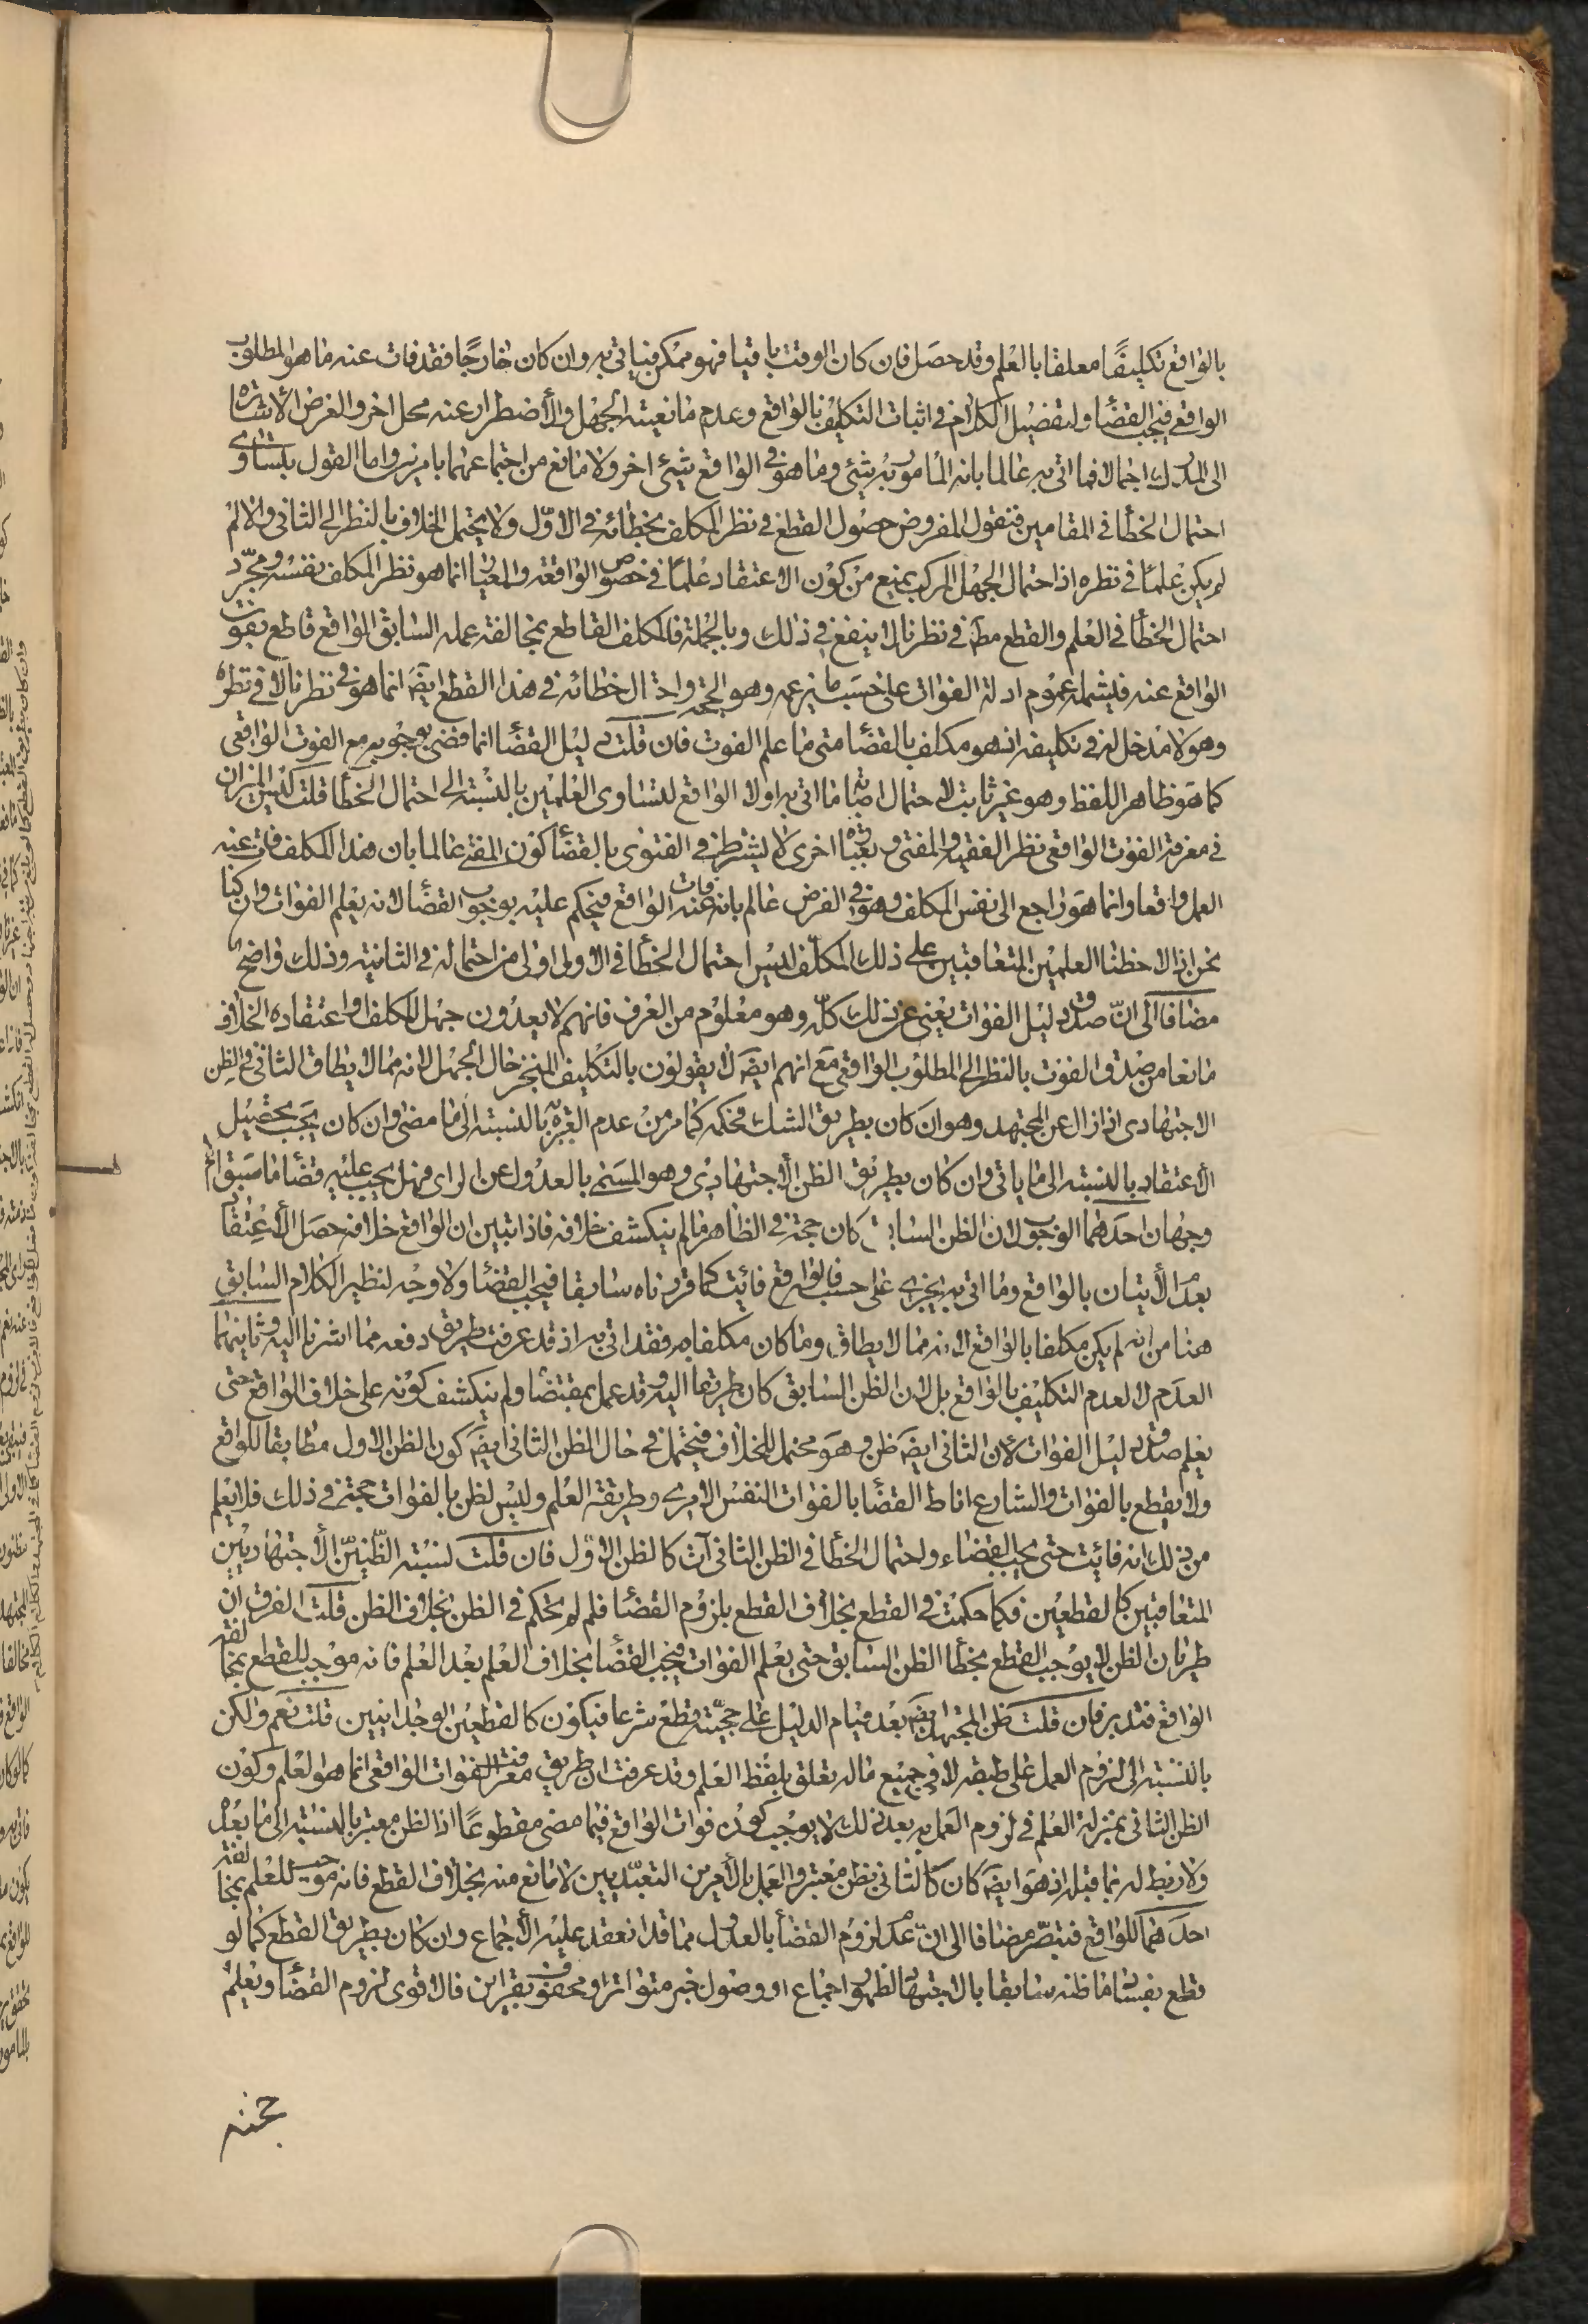 بالواقع تكليفًا معلقا بالعلم وقد حصل فان كان الوقت باقيا فهو ممكن فياتى به وان كان خارجًا فقد فات عنه ما هو المطلوب
الواقعى فيجب القضا ولتفضيل الكلام فى اثبات التكليف بالواقع وعدم مانعية الجهل والاضطرار عنه محل اخر والغرض الاشاره
الى المدرك اجمالا فما اتى به عالما بانه المامور به شيئ وما هو فى الواقع شيئ اخر ولا مانع من اجتماعهما بامرين واما القول بتساوى
احتمال الخطأ فى المقامين فنقول المفروض حصول القطع فى نظر المكلف بخطائه فى الاوّل ولا يحتمل الخلاف بالنظر الى الثانى والا لم
لم يكن علمًا فى نظره اذ احتمال الجهل المركب يمنع من كون الاعتقاد علمًا فى خصوص الواقعة والمعيار انما هو نظر المكلف نفسه ومجرّد
احتمال الخطأ فى العلم والقطع مطَ فى نظرنا لا ينفع فى ذلك وبالجملة فالمكلف القاطع بمخالفة عمله السابق الواقع قاطع بفوت
الواقع عنه فليشمله عموم ادلة الفوات على حسب ما يزعمه وهو الحجة واحتمال خطائه فى هذا القطع ايضَ انما هو فى نظرنا لا فى نظره
وهو لا مدخل له فى تكليفه اذ هو مكلف بالقضا متى ما علم الفوت فان قلت دليل القضا انما قضى بوجوبه مع الفوت الواقعى
كما هو ظاهر اللفظ وهو غير ثابت لاحتمال اصابة ما اتى به اولا الواقع لتساوى العلمين بالنسبة الى احتمال الخطأ قلت ليس الميزان
فى معرفة الفوت الواقعى نظر الفقيه والمفتى وبعبارة اخرى لا يشترط فى الفتوى بالقضا كون المفتى عالما بان هذا المكلف فات عنه
العمل واقعا وانما هو راجع الى نفس المكلف وهو فى الفرض عالم بانه فات عنه الواقع فيحكم عليه بوجوب القضا لانه يعلم الفوات وان كنا
نحن اذا لاحظنا العلمين المتعاقبين على ذلك المكلّف ليس احتمال الخطأ فى الاولى اولى من احتماله فى الثانية وذلك واضح
مضافا الى انّ صدق دليل الفوات يغنى عن ذلك كلّه وهو معلوم من العرف فانهم لا يعدون جهل المكلف او اعتقاده الخلاف
مانعا من صدق الفوت بالنظر الى المطلوب الواقعى مع انهم ايضَ لا يقولون بالتكليف المنجز حال الجهل لانه مما لا يطاق الثانى فى الظن
الاجتهادى اذا زال عن المجتهد وهو ان كان بطريق الشك فحكمه كما مر من عدم العبرة به بالنسبة الى ما مضى وان كان يجب تحصيل
الاعتقاد بالنسبة الى ما ياتى وان كان بطريق الظن الاجتهادى وهو المسمى بالعدول عن الراى فهل يجب عليه قضا ما سبق ام لا
وجهان احدهما الوجوب لان الظن السابق كان حجة فى الظاهر ما لم ينكشف خلافه فاذا تبين ان الواقع خلافه حصل الاعتقاد
بعدم الاتيان بالواقع وما اتى به يجزى على حسب فالواقع فائت كما قررناه سابقا فيجب القضا ولا وجه لنظير الكلام السابق
هنا من انه لم يكن مكلفا بالواقع لانه مما لا يطاق وما كان مكلفا به فقد اتى به اذ قد عرفت طريق دفعه مما اشرنا اليه وثانيهما
العدم لا لعدم التكليف بالواقع بل لان الظن السابق كان طريقا اليه وقد عمل بمقتضاه ولم ينكشف كونه على خلاف الواقع حتى
يعلم صدق دليل الفوات لان الثانى ايضَ ظن وهو محتمل للخلاف فيحتمل فى حال الظن الثانى ايضَ كون الظن الاول مطابقا للواقع
ولا يقطع بالفوات والشارع اناط القضا بالفوات النفس الامرى وطريقة العلم وليس لظن بالفوات حجة فى ذلك فلا يعلم
من ذلك انه فائت حتى يجب القضاء واحتمال الخطأ فى الظن الثانى آت كالظن الاوّل فان قلت نسبة الظنيّن الاجتهاديين
المتعاقبين كالقطعين فكما حكمت فى القطع بخلاف القطع بلزوم القضا فلم لم تحكم فى الظن بخلاف الظن قلت الفرق ان
طريان الظن لا يوجب القطع بخطأ الظن السابق حتى يعلم الفوات فيجب القضا بخلاف العلم بعد العلم فانه موجب للقطع بمخالفة
الواقع فتدبر فان قلت ظن المجتهد ايضَ بعد قيام الدليل على حجيّته قطع شرعا فيكون كالقطعين الوجدانيين قلت نعم ولكن
بالنسبة الى لزوم العمل على طبقه لا فى جميع ما له تعلق بلفظ العلم وقد عرفت ان طريق معرفة الفوات الواقعى انما هو العلم وكون
الظن الثانى بمنزلة العلم فى لزوم العمل به بعد ذلك لا يوجب كون فوات الواقع فيما مضى مقطوعًا اذ الظن معتبر بالنسبة الى ما بعد
ولا ربط له بما قبله اذ هو ايضَ كان كالثانى بظن معتبر والعمل بالأمرين التعبّديين لا مانع منه بخلاف القطع فانه موجب للعلم بمخالفة
احدهما للواقع فتبصّر مضافا الى انّ عدم لزوم القضا بالعدول مما قد انعقد عليه الاجماع وان كان بطريق القطع كما لو
قطع بفساد ما ظنه سابقا بالاجتهاد لظهور اجماع او وصول خبر متواتر او محفوف بقراين فالاقوى لزوم القضا ويعلم